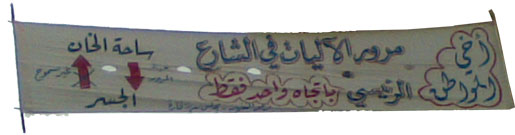 أخي المواطن
مرور الآليات في الشارع
الرئيسي باتجاه واحد فقط
ساحة الخان
الجسر